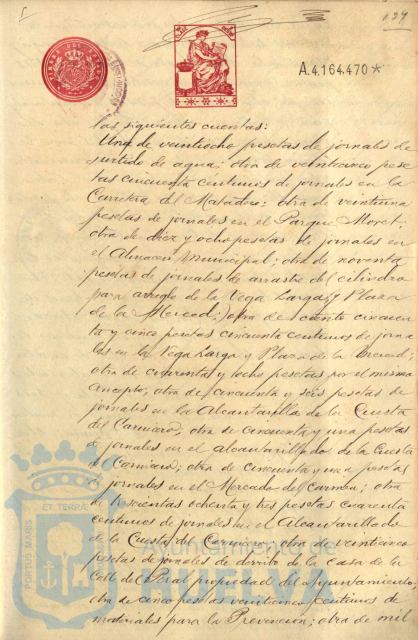 127
A.4.164.470*
las siguientes cuentas:
Una de veintiocho pesetas de jornales de
surtido de agua; otra de veinticinco pese
tas cincuenta centimos de jornales en la
Carretera del Matadero; otra de veintiuna
pesetas de jornales en el Parque Moret;
otra de diez y ocho pesetas de jornales en
el Almacen municipal; otra de noventa
pesetas de jornales de arrastre del cilindro
para arreglo de la Vega Larga y Plaza
de la Merced; otra de ciento cincuen
ta y cinco pesetas cincuenta centimos de jorna
les en la Vega Larga y Plaza de la Merced;
otra de cuarenta y ocho pesetas por el mismo
concepto; otra de cincuenta y seis pesetas de
jornales en la Alcantarilla de la Cuesta
del Carnicero; otra de cincuenta y una pesetas
de jornales en el alcantarillado de la Cuesta
del Carnicero; otra de cincuenta y una pesetas
de jornales en el Mercado del Carmen; otra
de trescientas ochenta y tres pesetas cuarenta
centimos de jornales en el Alcantarillado
de la Cuesta del Carnicero; otra de veinticinco
pesetas de jornales de derribo de la casa de la
Calle del Peral propiedad del Ayuntamiento;
otra de cinco pesetas veinticinco centimos de
materiales para la Prevencion; otra de mil
PORTUS MARIS ET TERRAE
Ayuntamiento de
HUELVA